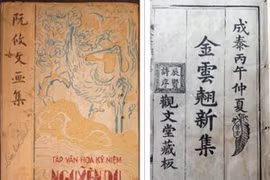 阮攸文画集
TẬP VĂN HỌA KỶ NIỆM
NGUYỄN DU
成泰丙午仲夏
金雲翹新集
觀文堂藏板